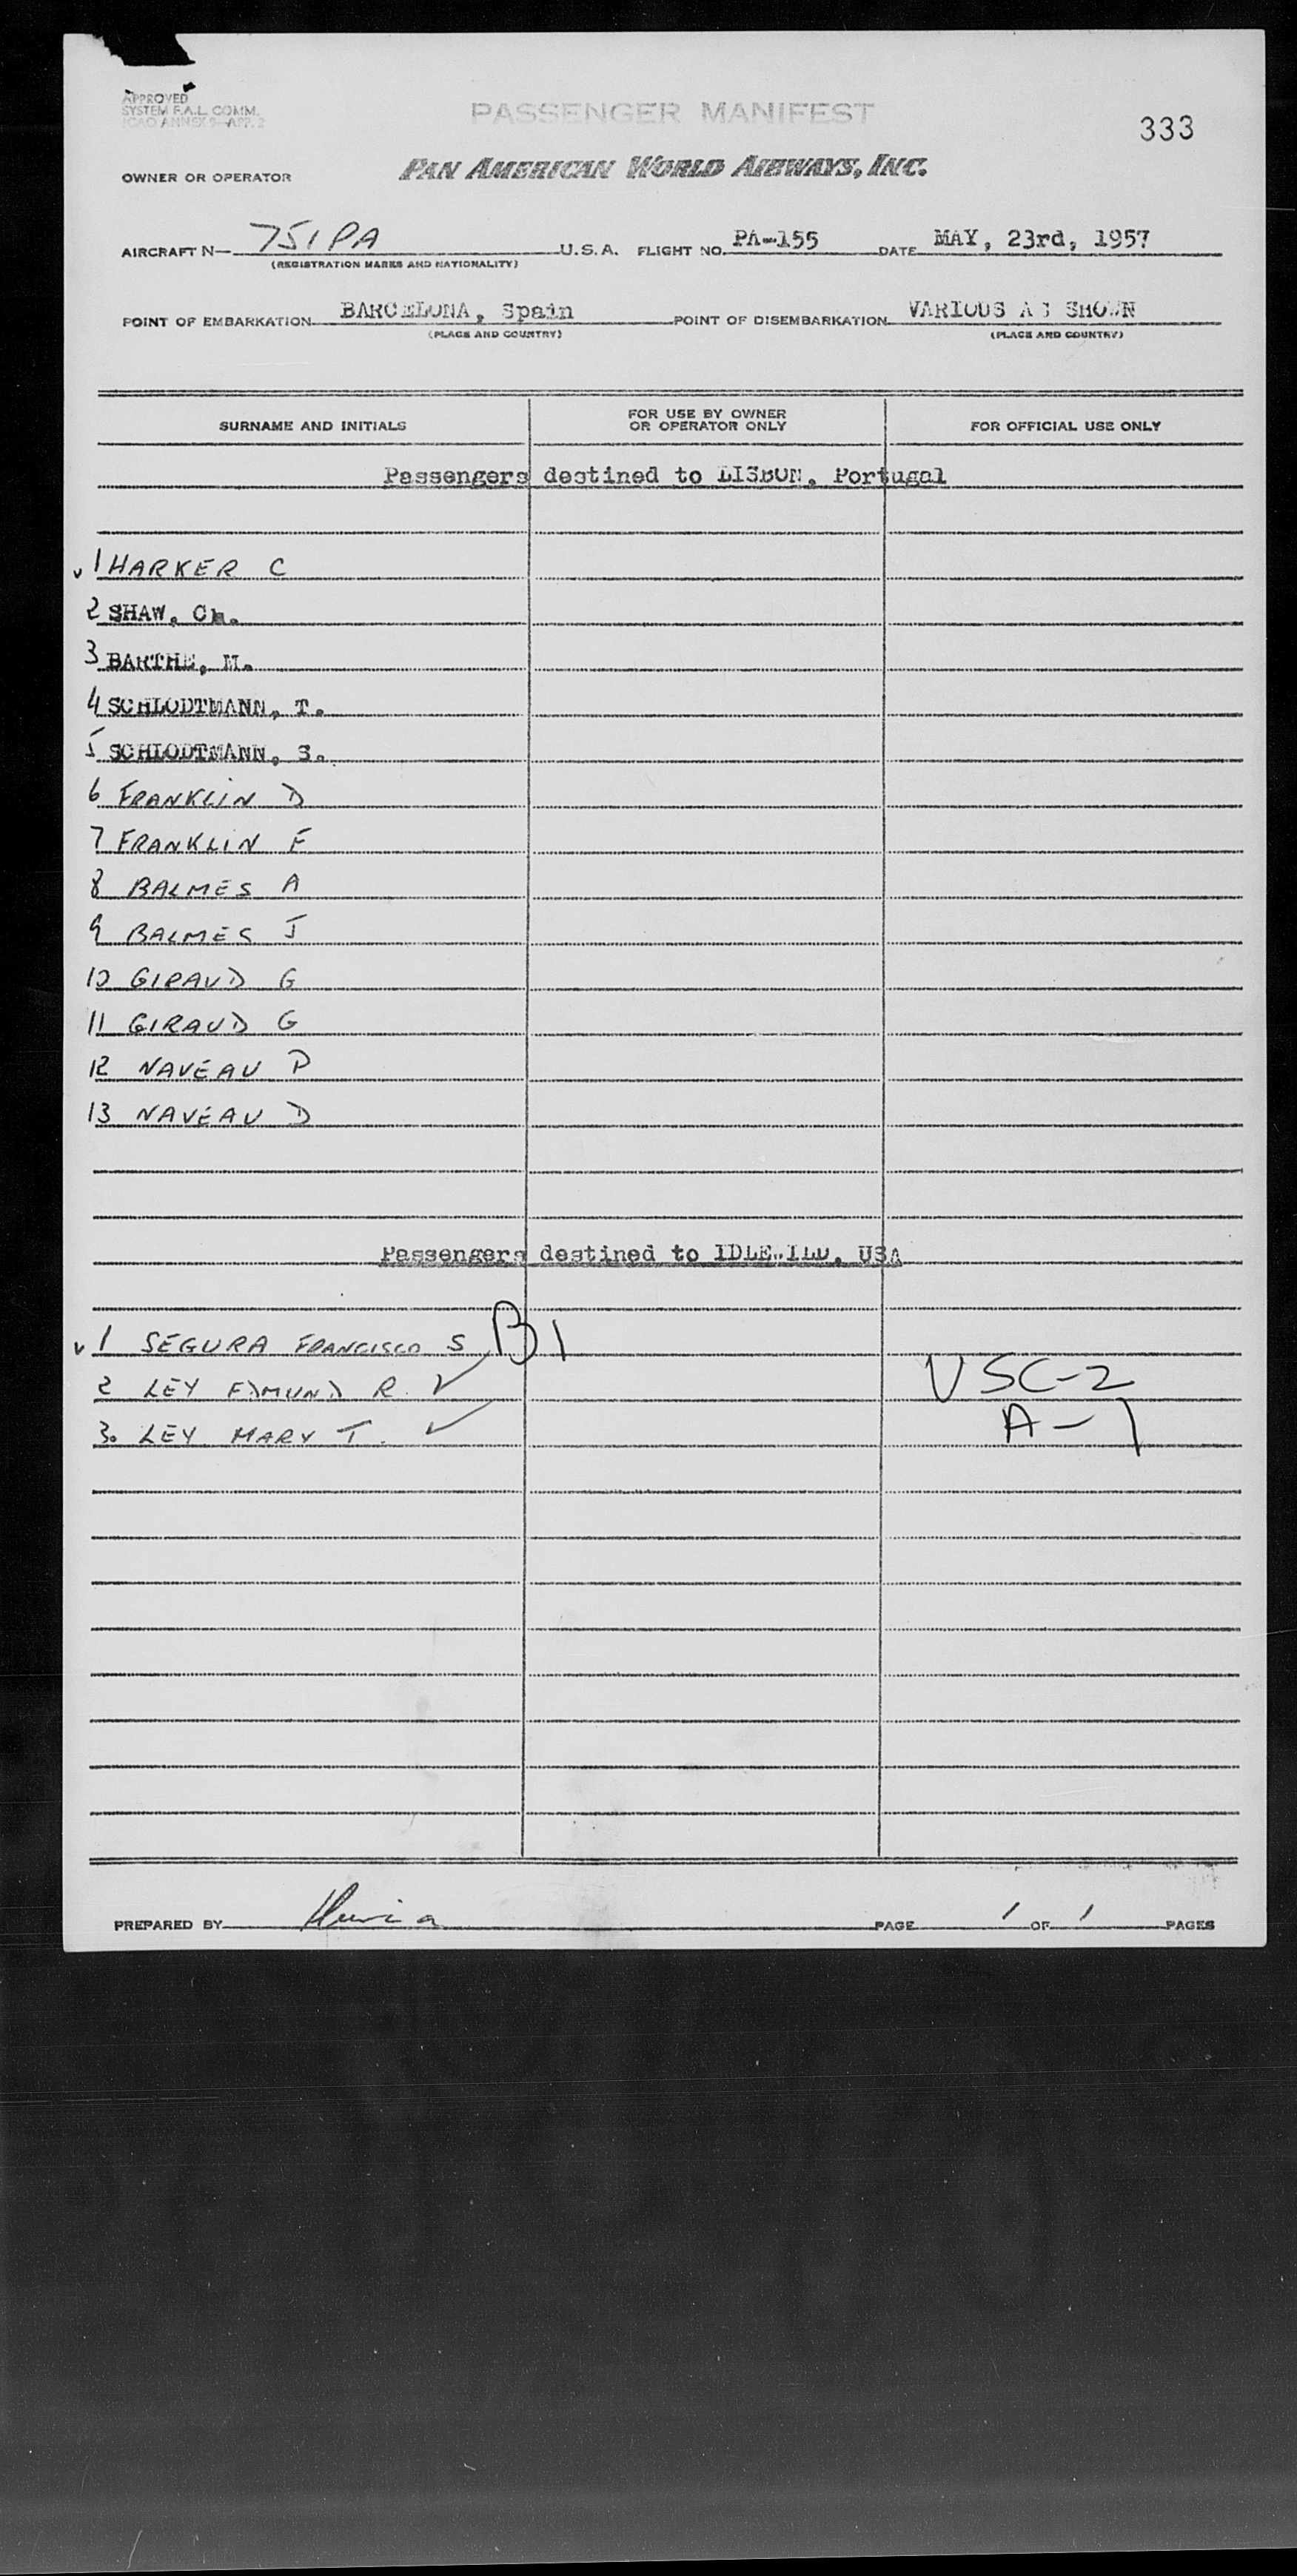 APPROVED
SYSTEM F.A.L. COMM.
ICAO ANNEX 9—APP. 2
PASSENGER MANIFEST
333
OWNER OR OPERATOR PAN AMERICAN WORLD AIRWAYS, INC.
AIRCRAFT N— 751PA U.S.A. FLIGHT NO. PA-155 DATE MAY, 23rd, 1957
(REGISTRATION MARKS AND NATIONALITY)
POINT OF EMBARKATION BARCELONA, Spain POINT OF DISEMBARKATION VARIOUS AS SHOWN
(PLACE AND COUNTRY) (PLACE AND COUNTRY)
SURNAME AND INITIALS FOR USE BY OWNER OR OPERATOR ONLY FOR OFFICIAL USE ONLY
Passengers destined to LISBON, Portugal
v 1 HARKER C
2 SHAW, Ch.
3 BARTHE, M.
4 SCHLODTMANN, T.
5 SCHLODTMANN, S.
6 FRANKLIN D
7 FRANKLIN F
8 BALMES A
9 BALMES J
10 GIRAUD G
11 GIRAUD G
12 NAVEAU P
13 NAVEAU D
Passengers destined to IDLEWILD, USA
v 1 SEGURA FRANCISCO S B1
2 LEY EDMUND R. ✓ USC-2
3. LEY MARY T. ✓ A-1
PREPARED BY PAGE 1 OF 1 PAGES